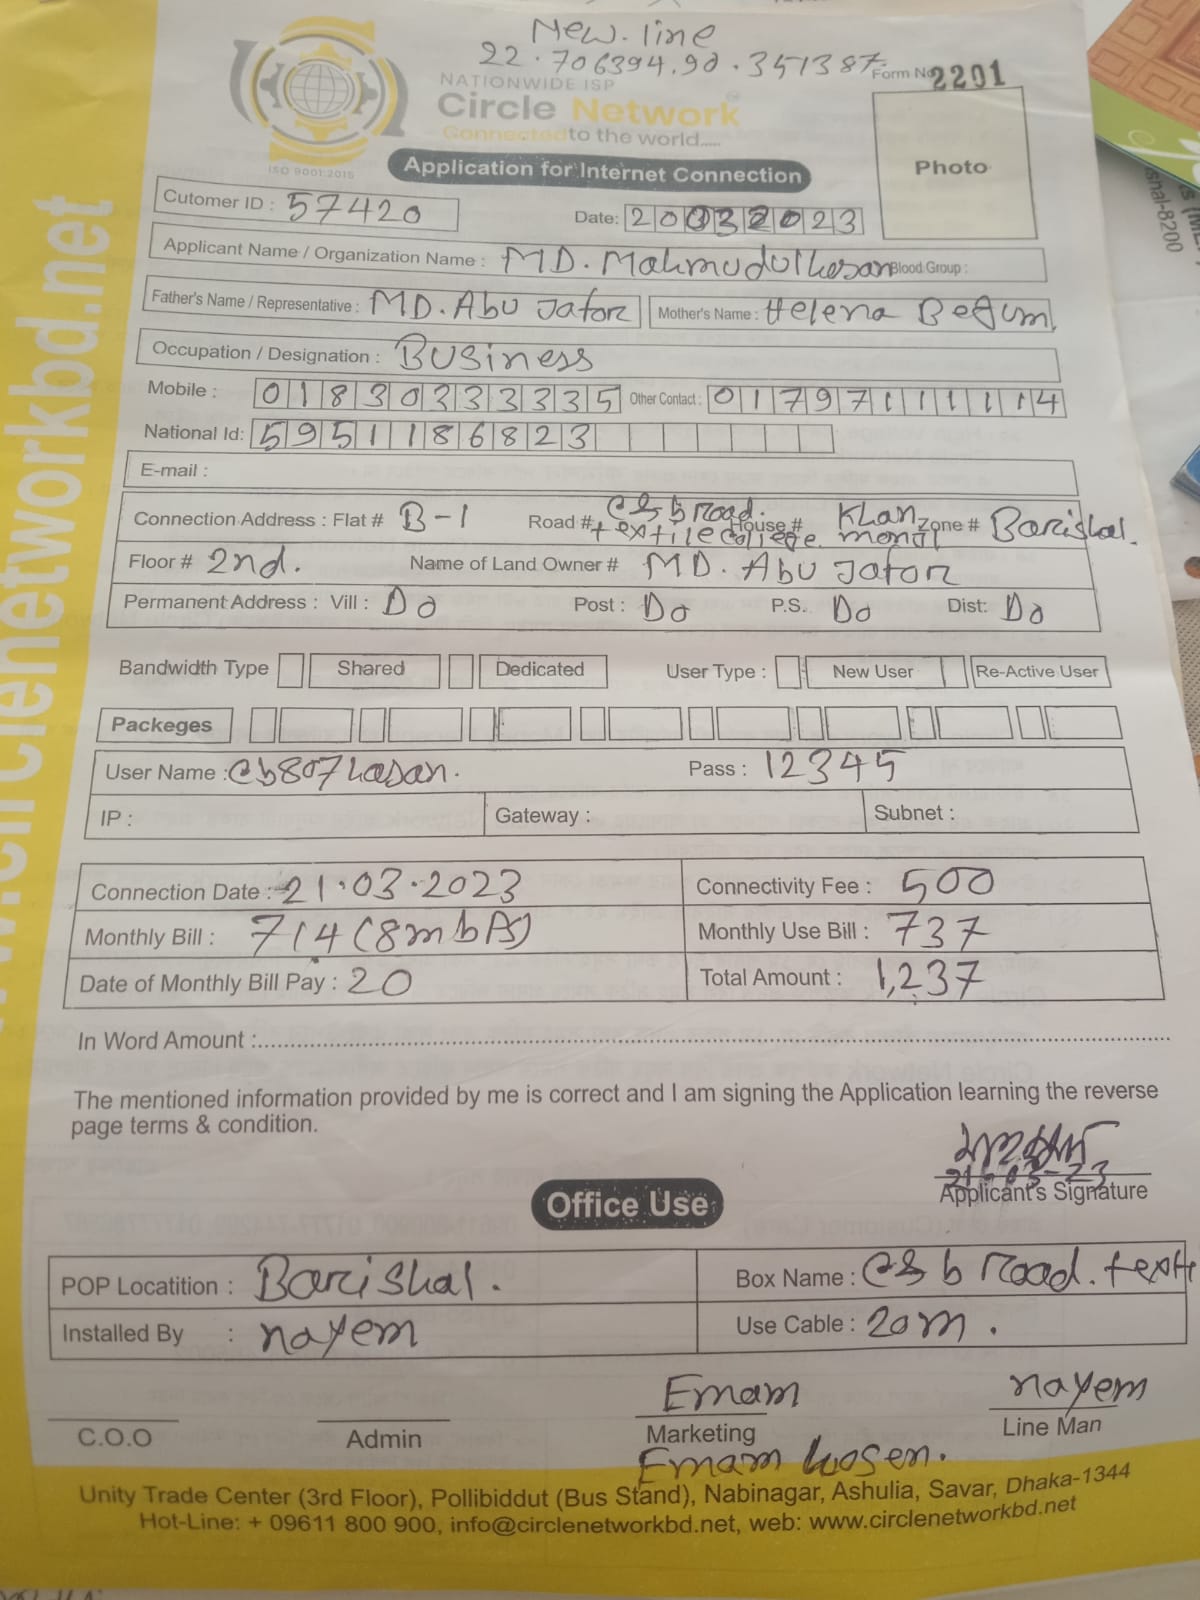 New. line
22.706394.90.351387
Form No 2201
NATIONWIDE ISP
Circle Network
Connected to the world.....
ISO 9001:2015
Application for Internet Connection
Photo
Cutomer ID : 57420
Date: 20032023
Applicant Name / Organization Name : MD. Mahmudul hasan Blood Group :
Father's Name / Representative : MD. Abu Jafor Mother's Name : Helena Begum
Occupation / Designation : Business
Mobile : 01830333335 Other Contact : 01797111114
National Id: 5951186823
E-mail :
Connection Address : Flat # B-1 Road # C&b road. textile college. House # Khan monjil Zone # Barishal.
Floor # 2nd. Name of Land Owner # MD. Abu Jafor
Permanent Address : Vill : Do Post : Do P.S. Do Dist: Do
Bandwidth Type Shared Dedicated User Type : New User Re-Active User
Packeges
User Name : cb807hasan. Pass : 12345
IP : Gateway : Subnet :
Connection Date : 21.03.2023 Connectivity Fee : 500
Monthly Bill : 714 (8mbps) Monthly Use Bill : 737
Date of Monthly Bill Pay : 20 Total Amount : 1,237
In Word Amount :
The mentioned information provided by me is correct and I am signing the Application learning the reverse
page terms & condition.
21-03-23
Applicant's Signature
Office Use
POP Locatition : Barishal. Box Name : C&b road.
Installed By : nayem Use Cable : 20m.
Emam nayem
C.O.O Admin Marketing Line Man
Emam hosen.
Unity Trade Center (3rd Floor), Pollibiddut (Bus Stand), Nabinagar, Ashulia, Savar, Dhaka-1344
Hot-Line: + 09611 800 900, info@circlenetworkbd.net, web: www.circlenetworkbd.net
www.circlenetworkbd.net
shal-8200